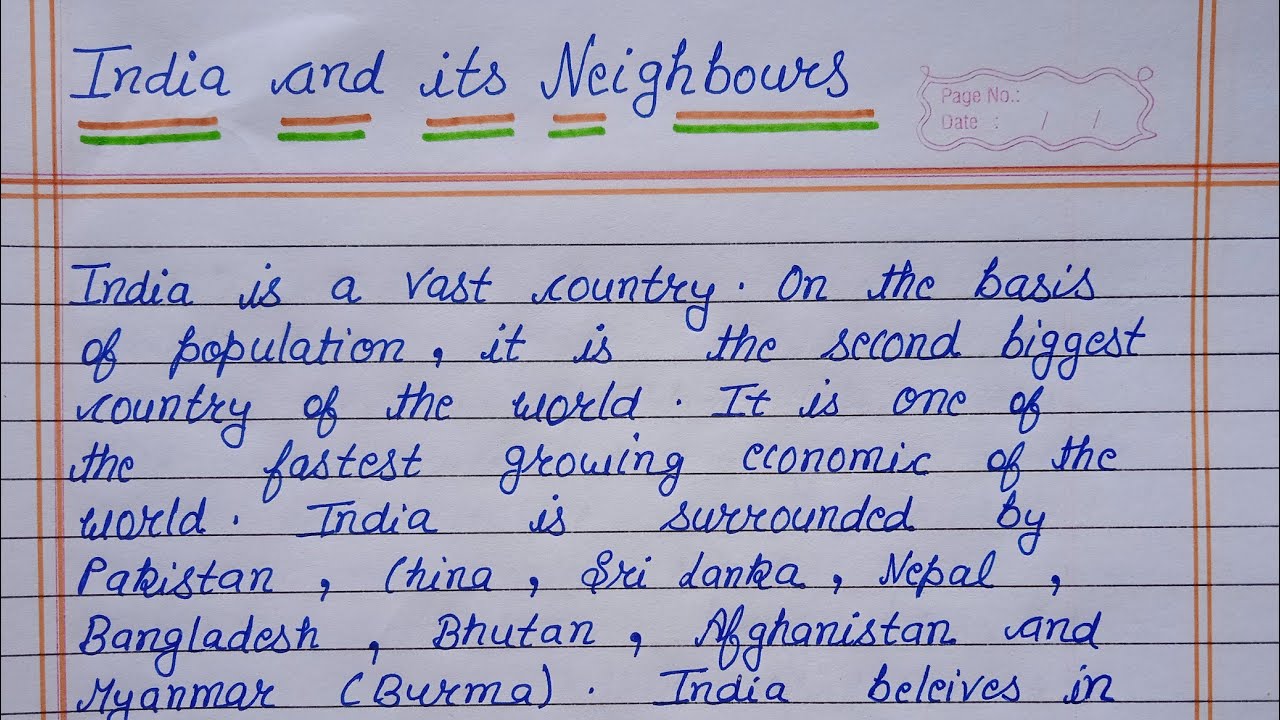 India and its Neighbours
Page No.:
Date : / /
India is a vast country. On the basis
of population, it is the second biggest
country of the world. It is one of
the fastest growing economic of the
world. India is surrounded by
Pakistan, China, Sri lanka, Nepal,
Bangladesh, Bhutan, Afghanistan and
Myanmar (Burma). India beleives in